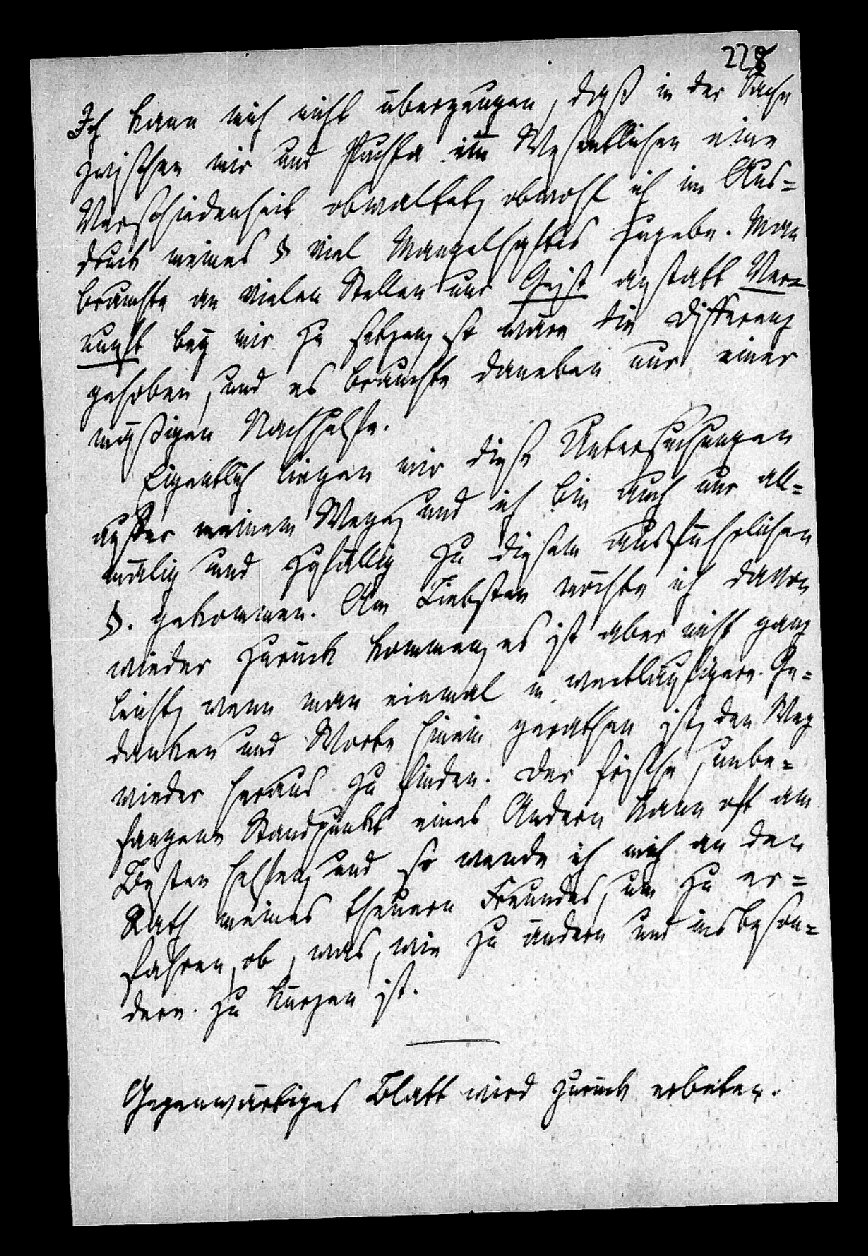 228
Ich kann mich nicht überzeugen, daß in der Sache
zwischen mir und Puchta im Wesentlichen eine
Verschiedenheit obwaltet, obwohl ich im Aus=
druck meines § viel Mangelhaftes zugebe. Man
brauchte an vielen Stellen nur Geist anstatt Ver=
nunft bey mir zu setzen, so wäre die Differenz
gehoben, und es brauchte daneben nur einer
mäßigen Nachhülfe.
Eigentlich liegen mir diese Untersuchungen
außer meinem Wege, und ich bin auch nur all=
mälig und zufällig zu diesem ausführlichen
§. gekommen. Am Liebsten möchte ich davon
wieder zurück kommen, es ist aber nicht ganz
leicht, wenn man einmal in weitläufigere Ge=
danken und Worte hinein gerathen ist, den Weg
wieder heraus zu finden. Der frische, unbe=
fangene Standpunkt eines Andern kann oft am
Besten helfen, und so wende ich mich an den
Rath meines theuern Freundes, um zu er=
fahren, ob, was, wie zu ändern und insbeson=
dere zu kürzen ist.
Gegenwärtiges Blatt wird zurück erbeten.